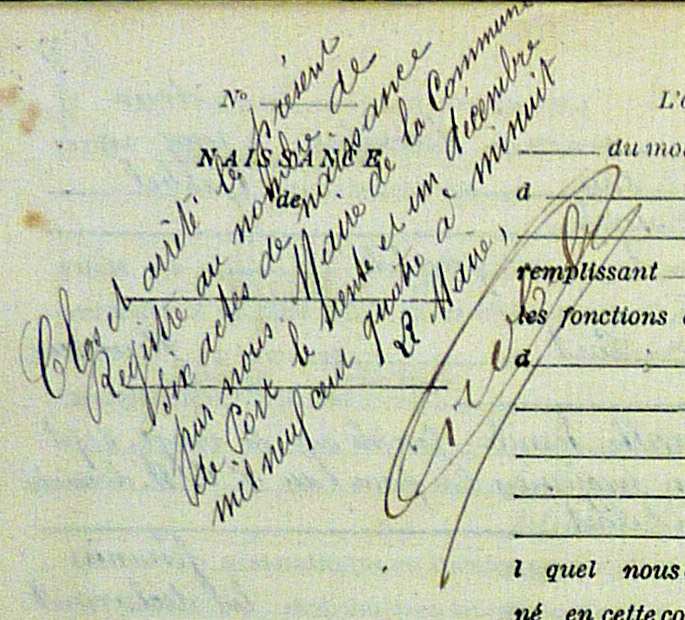 N°
NAISSANCE
de
Clos et arrêté le présent
Registre au nombre de
six actes de naissance
par nous Maire de la Commune
de Port le trente et un décembre
mil neuf cent quatre à minuit
Le Maire,
L'
du moi
d
remplissant
les fonctions
d
l quel nous
né en cette co